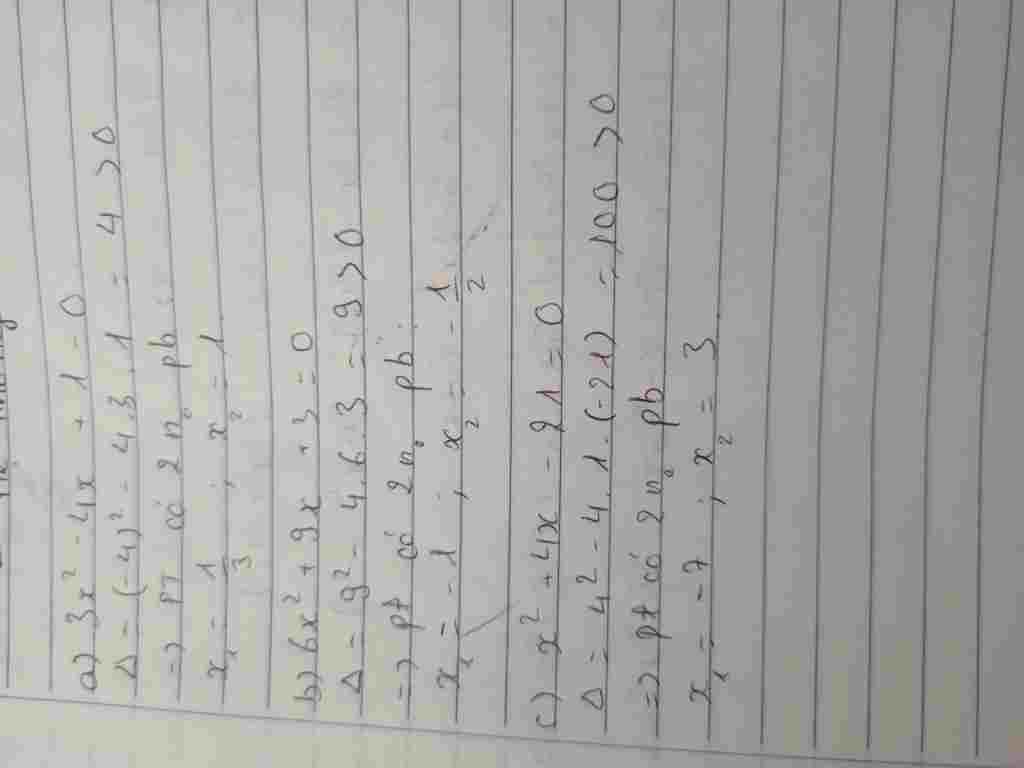 a) 3x² - 4x + 1 = 0
Δ = (-4)² - 4.3.1 = 4 > 0
=> PT có 2 n₀ pb:
x₁ = 1/3 ; x₂ = 1
b) 6x² + 9x + 3 = 0
Δ = 9² - 4.6.3 = 9 > 0
=> pt có 2 n₀ pb:
x₁ = -1 ; x₂ = -1/2
c) x² + 4x - 21 = 0
Δ = 4² - 4.1.(-21) = 100 > 0
=> pt có 2 n₀ pb
x₁ = -7 ; x₂ = 3